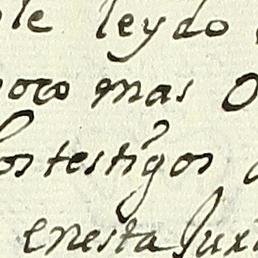 le leydo
poco mas O
los testigos
en esta Jur